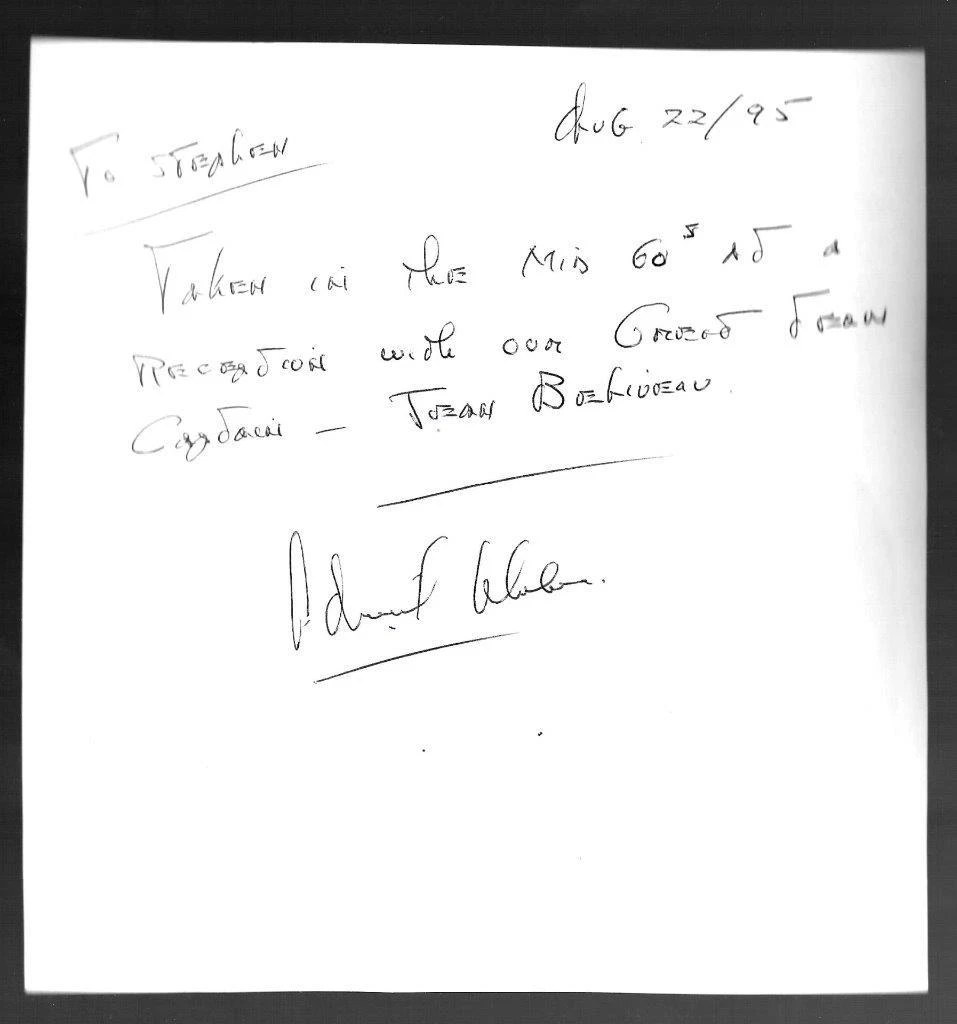 Aug 22/95
To Stephen
Taken in the Mid 60s at a
Reception with our Great Team
Captain - Jean Beliveau.